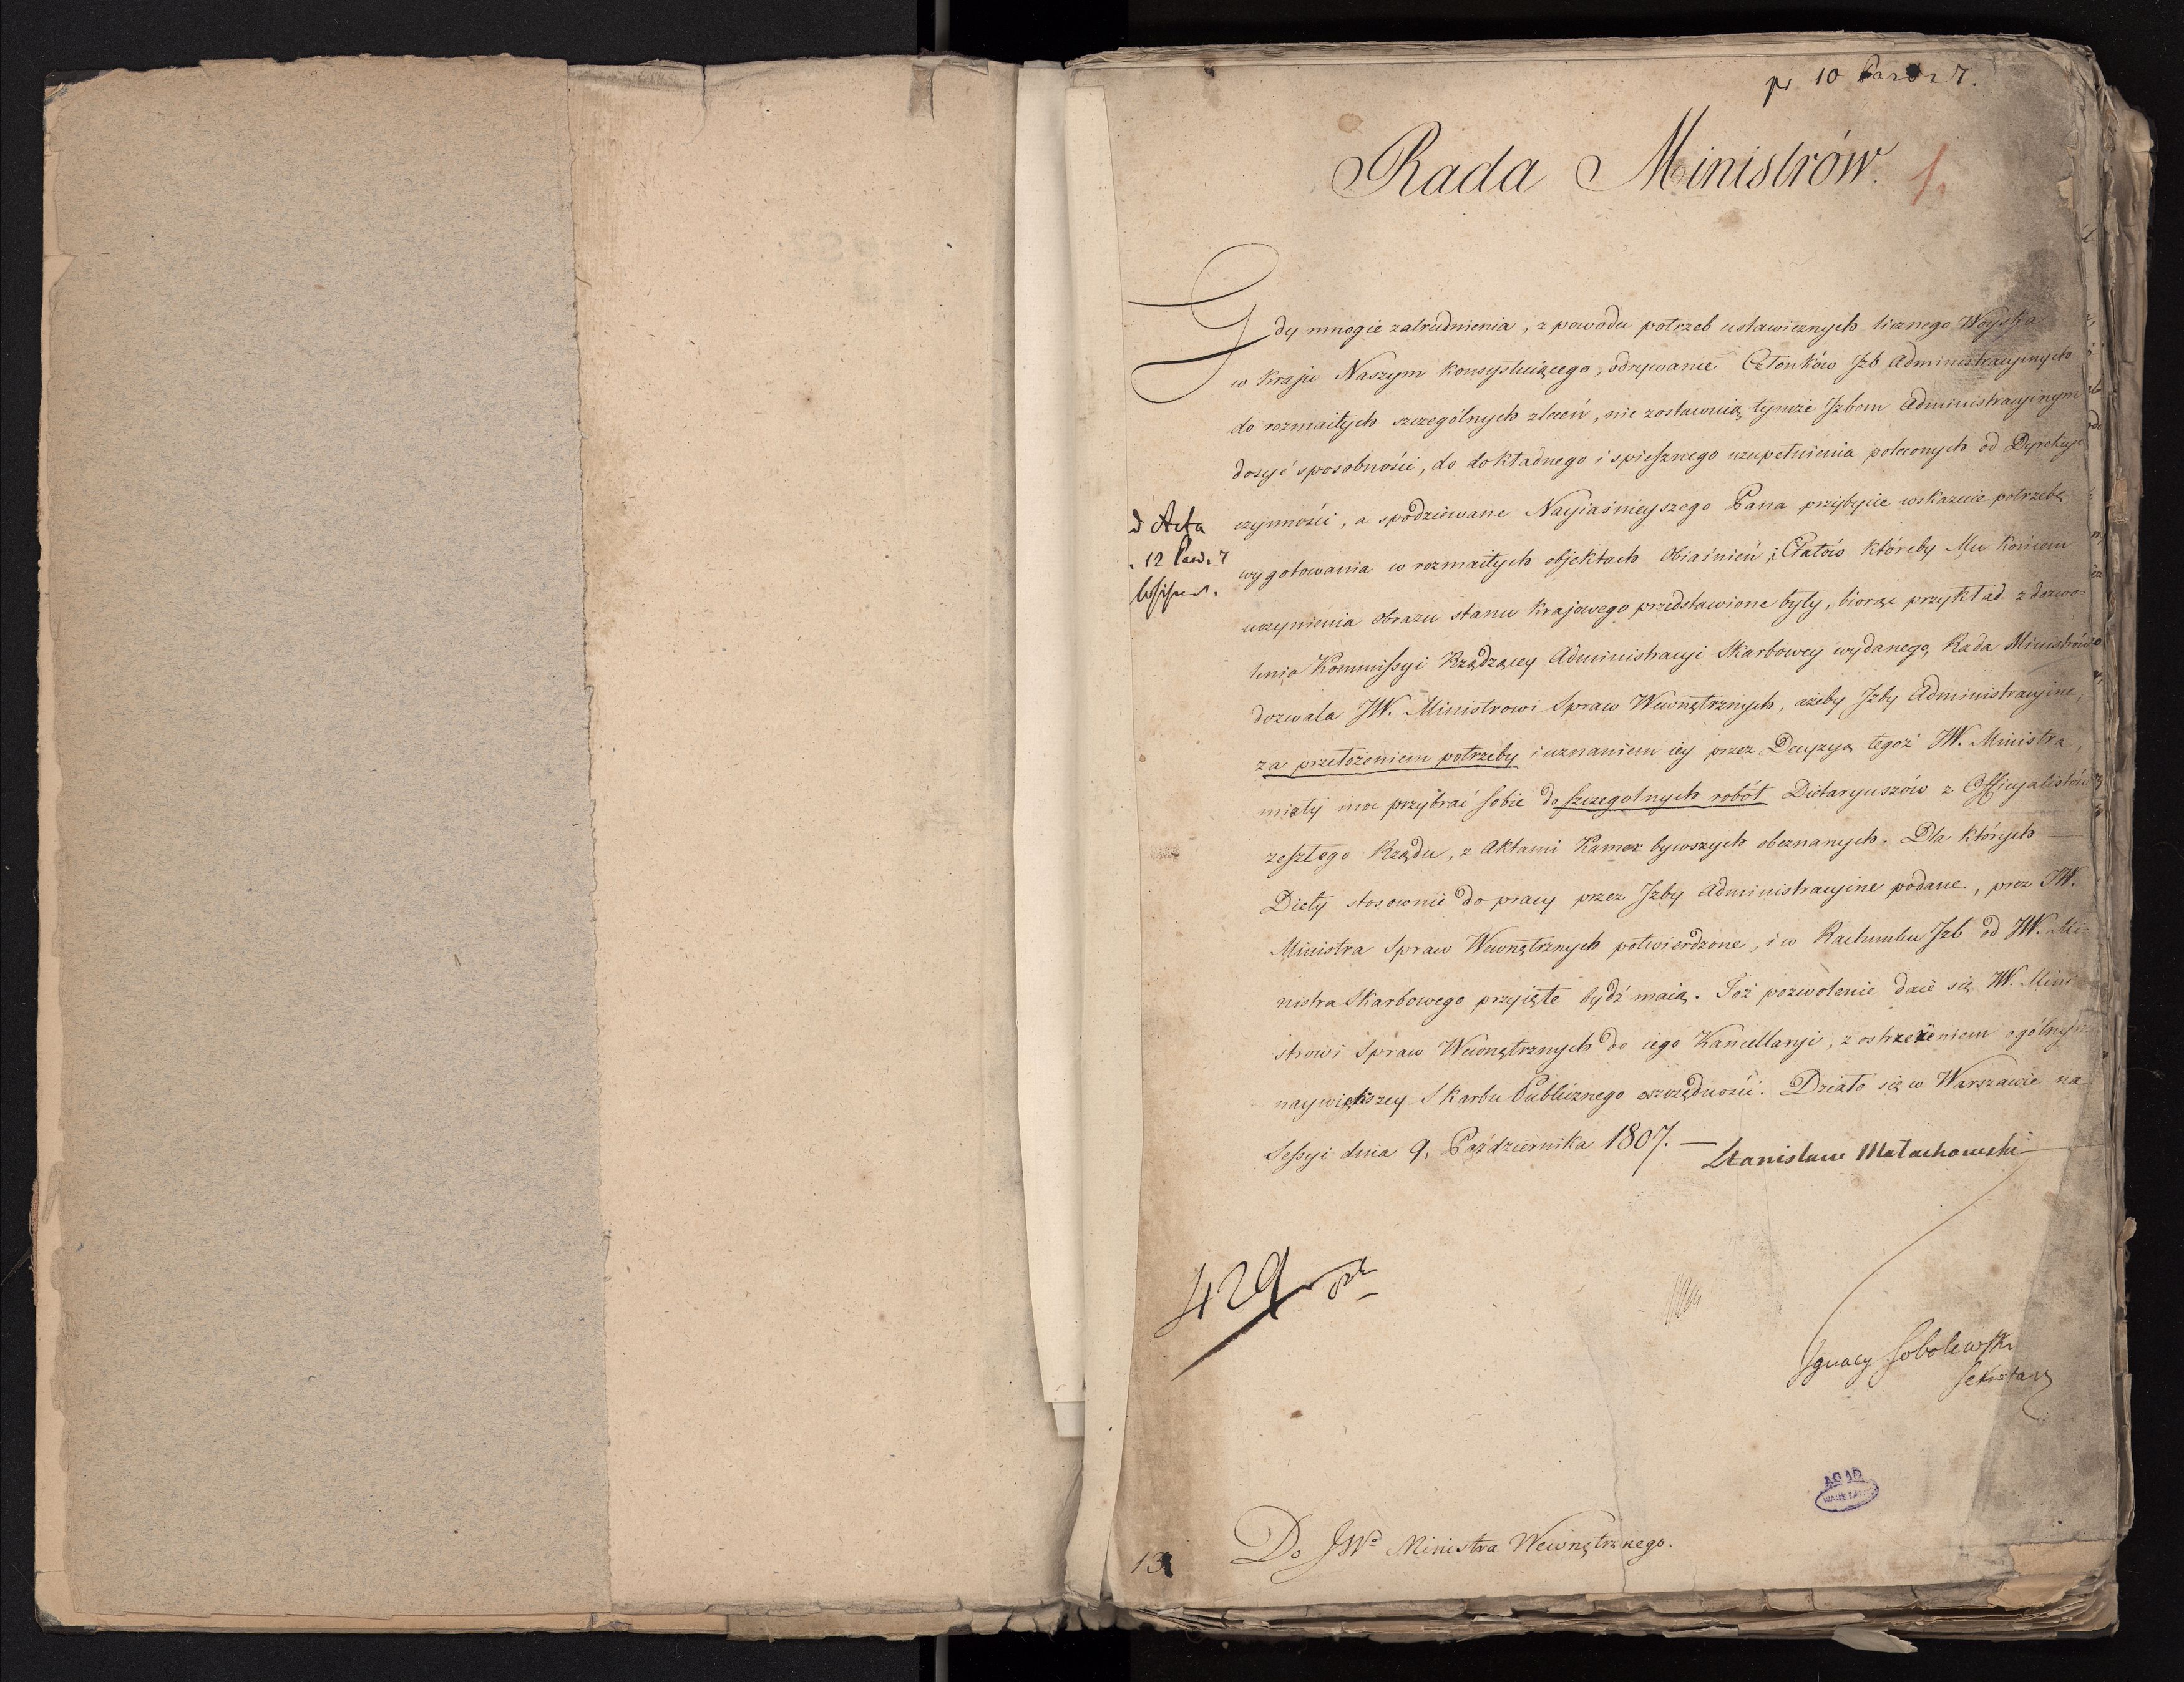 pr 10 Paz 807.
Rada Ministrów.
1.
Gdy mnogie zatrudnienia, z powodu potrzeb ustawicznych licznego Woyska
w kraju Naszym konsystuiącego, odrywanie Członków Jzb Administracyinych
do rozmaitych szczególnych zleceń, nie zostawuią tymże Jzbom Administracyinym
dosyć sposobności, do dokładnego i spiesznego uzupełnienia poleconych od Dyrekcyi
czynności, a spodziewane Nayiaśnieyszego Pana przybycie wskazuie potrzebę
wygotowania w rozmaitych objektach Obiaśnień i Etatów któreby Mu końcem
uczynienia obrazu stanu krajowego przedstawione były, biorąc przykład z dozwo=
lenia Kommissyi Rządzącey Administracyi Skarbowey wydanego, Rada Ministrów
dozwala JW. Ministrowi Spraw Wewnętrznych, ażeby Jzby Administracyine,
za przełożeniem potrzeby i uznaniem iey przez Decyzyą tegoż JW. Ministra,
miały moc przybrać sobie do szczegolnych robót Dietaryuszów z Officyalistów
zeszłego Rządu, z Aktami Kamer bywszych obeznanych. Dla których
Diety stosownie do pracy przez Jzby Administracyine podane, przez JW.
Ministra Spraw Wewnętrznych potwierdzone, i w Rachunku Jzb od JW. Mi=
nistra Skarbowego przyięte bydź maią. Toż pozwolenie daie się JW. Mini=
strowi Spraw Wewnętrznych do iego Kancellaryi, z ostrzeżeniem ogólnym
naywiększey Skarbu Publicznego oszczędności. Działo się w Warszawie na
Sessyi dnia 9. Października 1807. —
Stanisław Małachowski
d Acta
12 Paz. 7
429
Ignacy Sobolewski
Sekretarz
AGAD
WARSZAWA
Do JWo Ministra Wewnętrznego.
13